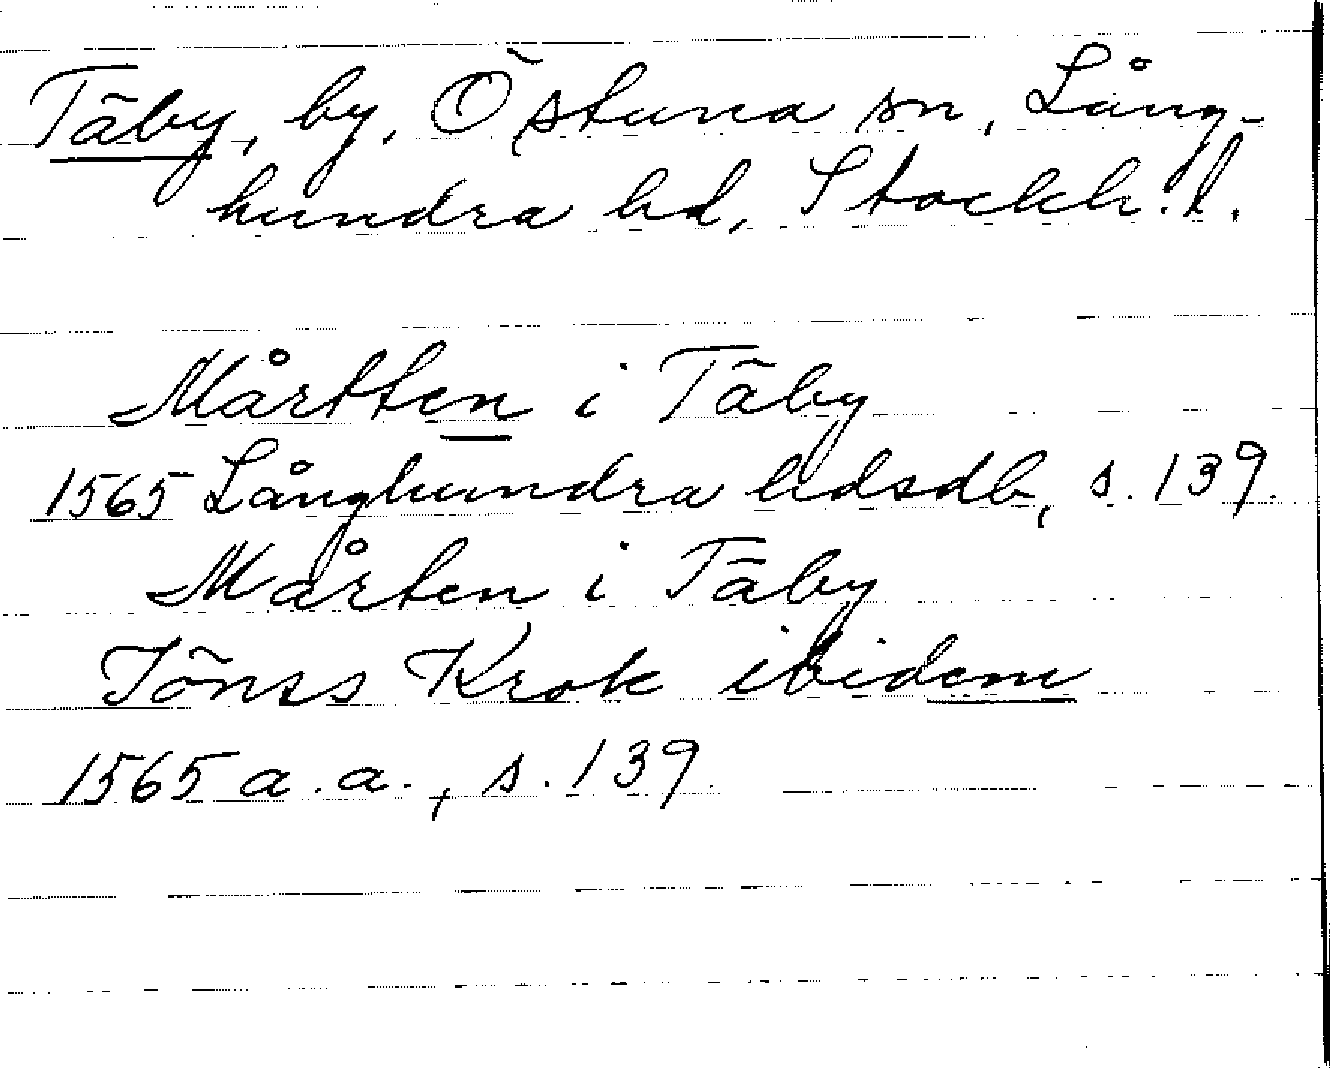 Täby, by, Östuna sn, Lång-
hundra hd, Stockh. l.
Mårtten i Täby
1565 Långhundra hdsdb, s. 139.
Mårten i Täby
Jönss Krok ibidem
1565 a.a., s. 139.